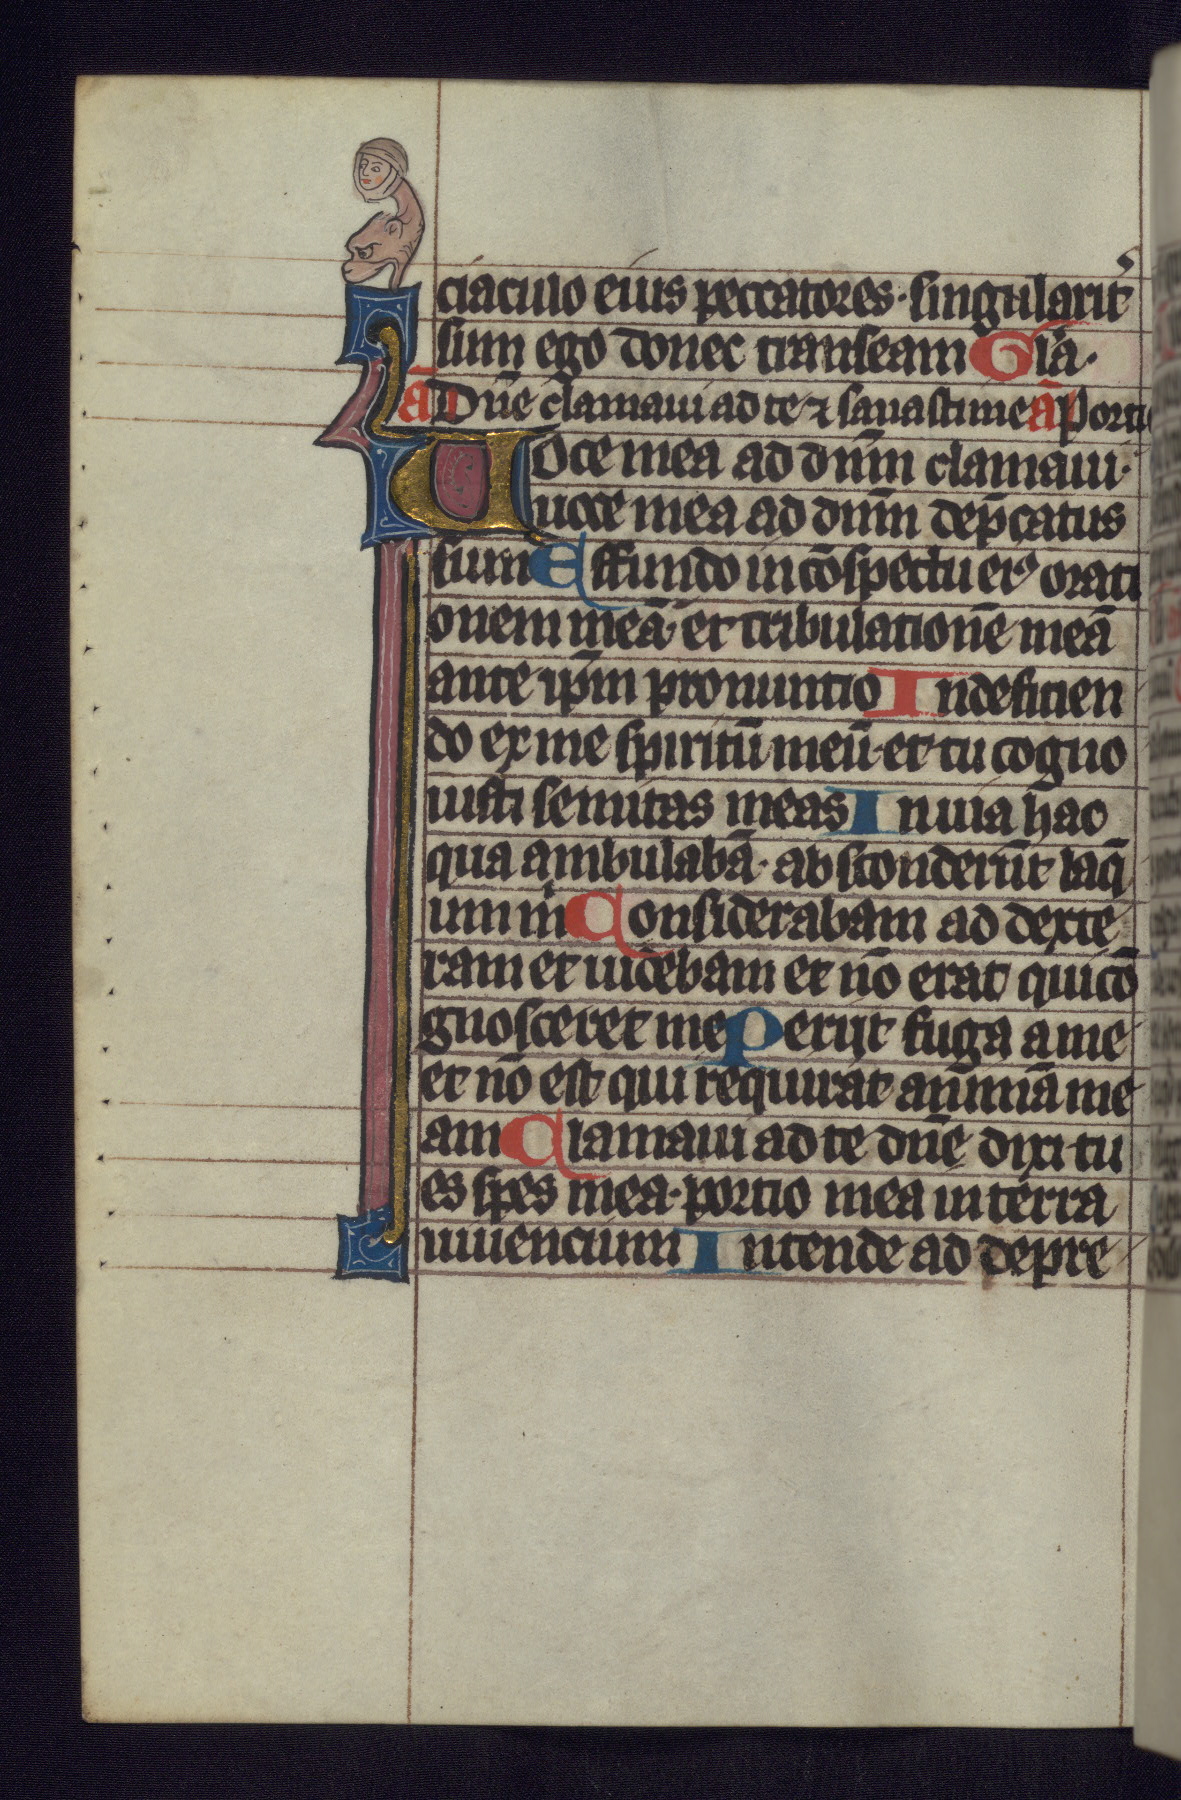 ciaculo eius peccatores · singularit᷑
sum ego donec transeam Gła·
añ Dñe clamaui ad te ⁊ saluasti me añ Portio
Uoce mea ad dñm clamaui·
uoce mea ad dñm dep̄catus
sum Effundo in cōspectu eiꝰ orati
onem meā· et tribulationē meā
ante ip̄m pronuntio In deficien
do ex me spiritū meū· et tu cogno
uisti semitas meas In uia hac
qua ambulabā· absconderūt laq̄
um m̍ Considerabam ad dexte
ram et uidebam et nō erat qui cō
gnosceret me Perijt fuga a me
et nō est qui requirat animā me
am Clamaui ad te dñe dixi· tu
es spes mea· portio mea in terra
uiuencium Intende ad depre